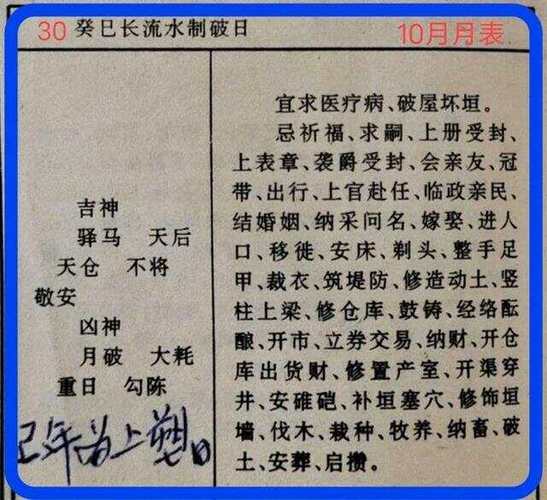 30 癸巳长流水制破日 10月月表
吉神
驿马 天后
天仓 不将
敬安
凶神
月破 大耗
重日 勾陈
巳年为上塑日
宜求医疗病、破屋坏垣。
忌祈福、求嗣、上册受封、
上表章、袭爵受封、会亲友、冠
带、出行、上官赴任、临政亲民、
结婚姻、纳采问名、嫁娶、进人
口、移徙、安床、剃头、整手足
甲、裁衣、筑堤防、修造动土、竖
柱上梁、修仓库、鼓铸、经络酝
酿、开市、立券交易、纳财、开仓
库出货财、修置产室、开渠穿
井、安碓硙、补垣塞穴、修饰垣
墙、伐木、栽种、牧养、纳畜、破
土、安葬、启攒。